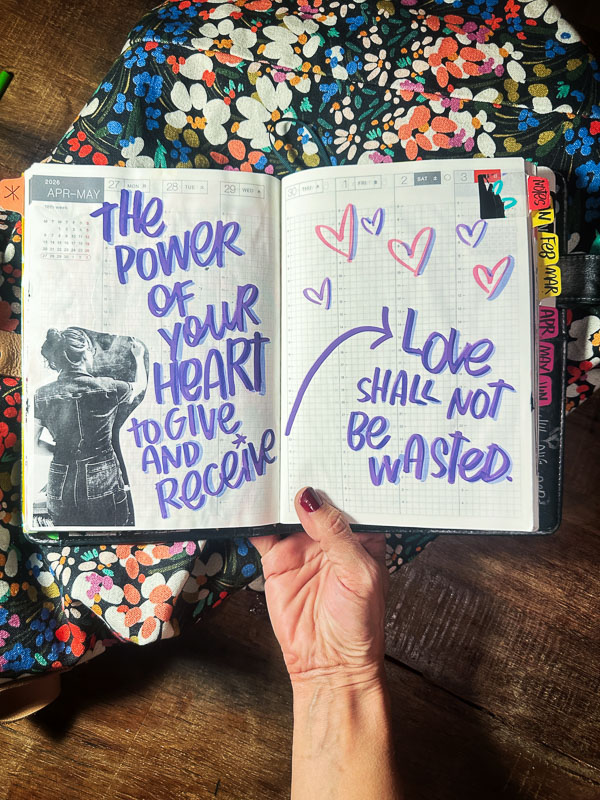 2026
APR–MAY
27 MON
28 TUE
29 WED
30 THU
1 FRI
2 SAT
3
THE
POWER
OF
YOUR
HEART
to GIVE
AND
RECEIVE
LOVE
SHALL NOT
BE
WASTED.
NOTES
FEB
MAR
APR
MAY
JUN